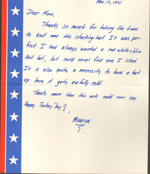 Nov. 17, 1971
Dear Mom,
Thanks so much for taking the time
to knit me the stocking hat. It was per-
fect. I had always wanted a red-white-blue
knit hat, but could never find one I liked.
It is also quite a necessity to have a hat
up here it gets awfully cold.
Thanks more than this note could ever say.
Happy Turkey Day,
Marion